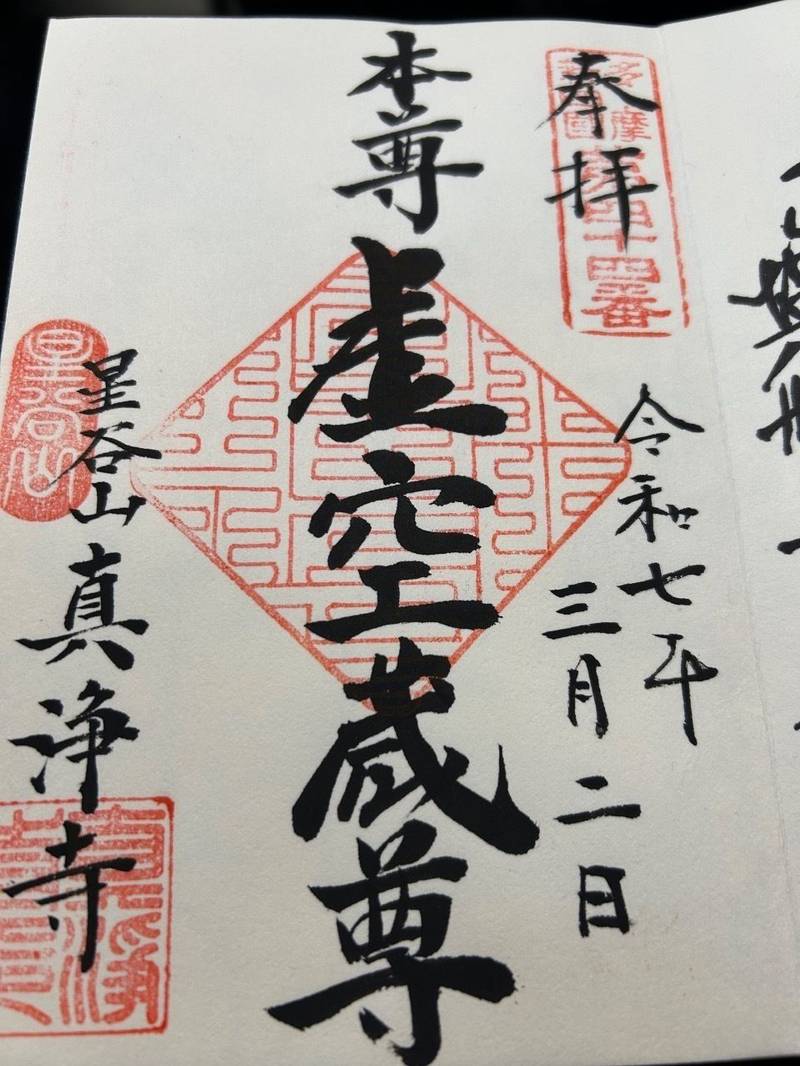 奉拝
多摩
四國
第四十四番
令和七年
三月二日
本尊
虚空蔵尊
星谷山
星谷山
真浄寺